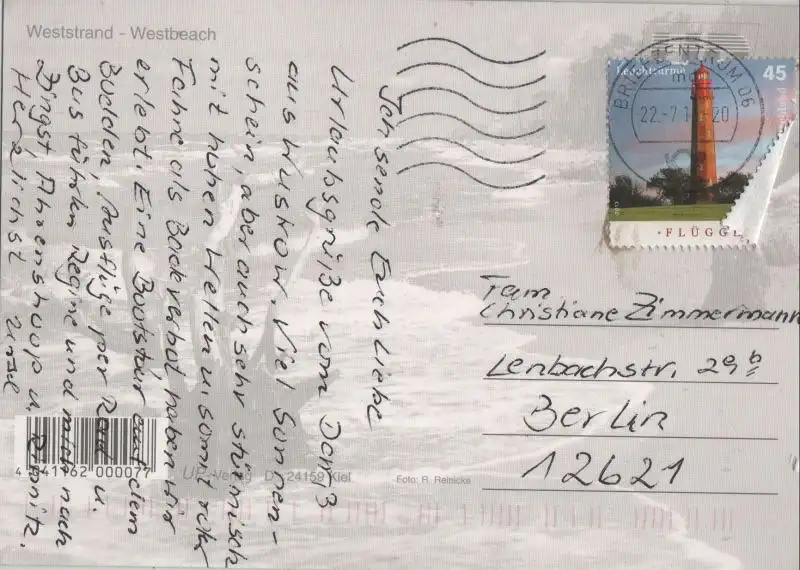 Weststrand - Westbeach
Ich sende Euch liebe
Urlaubsgrüße vom Darß
aus Wustrow. Viel Sonnen-
schein, aber auch sehr stürmisch
mit hohen Wellen u. somit rote
Fahne als Badeverbot haben wir
erlebt. Eine Bootstour auf dem
Bodden, Ausflüge per Rad u.
Bus führen Regine und mich nach
Dingst Ahrenshoop u. Ribnitz.
Herzlichst
BRIEFZENTRUM 06
22.-7.1 20
Leuchtturm
45
FLÜGGE
Fam
Christiane Zimmermann
Lenbachstr. 29b
Berlin
12621
4 041762 000077
Verlag D-24159 Kiel
Foto: R. Reinicke